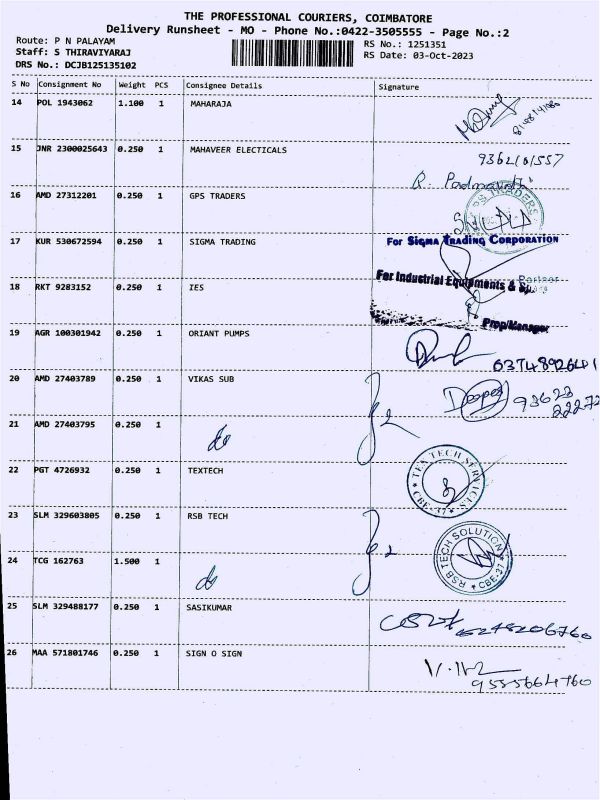 THE PROFESSIONAL COURIERS, COIMBATORE
Delivery Runsheet - MO - Phone No.:0422-3505555 - Page No.:2
Route: P N PALAYAM
RS No.: 1251351
Staff: S THIRAVIYARAJ
RS Date: 03-Oct-2023
DRS No.: DCJB125135102
S No Consignment No Weight PCS Consignee Details Signature
14 POL 1943062 1.100 1 MAHARAJA
15 JNR 2300025643 0.250 1 MAHAVEER ELECTICALS
R. Padmavathi
16 AMD 27312201 0.250 1 GPS TRADERS
17 KUR 530672594 0.250 1 SIGMA TRADING For SIGMA TRADING CORPORATION
Partner
18 RKT 9283152 0.250 1 IES For Industrial Equipments &
Prop/Manager
19 AGR 100301942 0.250 1 ORIANT PUMPS
6374892641
20 AMD 27403789 0.250 1 VIKAS SUB
93623
22272
21 AMD 27403795 0.250 1
do
22 PGT 4726932 0.250 1 TEXTECH TEX TECH SERVICES CBE-37
23 SLM 329603805 0.250 1 RSB TECH
RSB TECH SOLUTION CBE-37
24 TCG 162763 1.500 1
do
25 SLM 329488177 0.250 1 SASIKUMAR
26 MAA 571801746 0.250 1 SIGN O SIGN